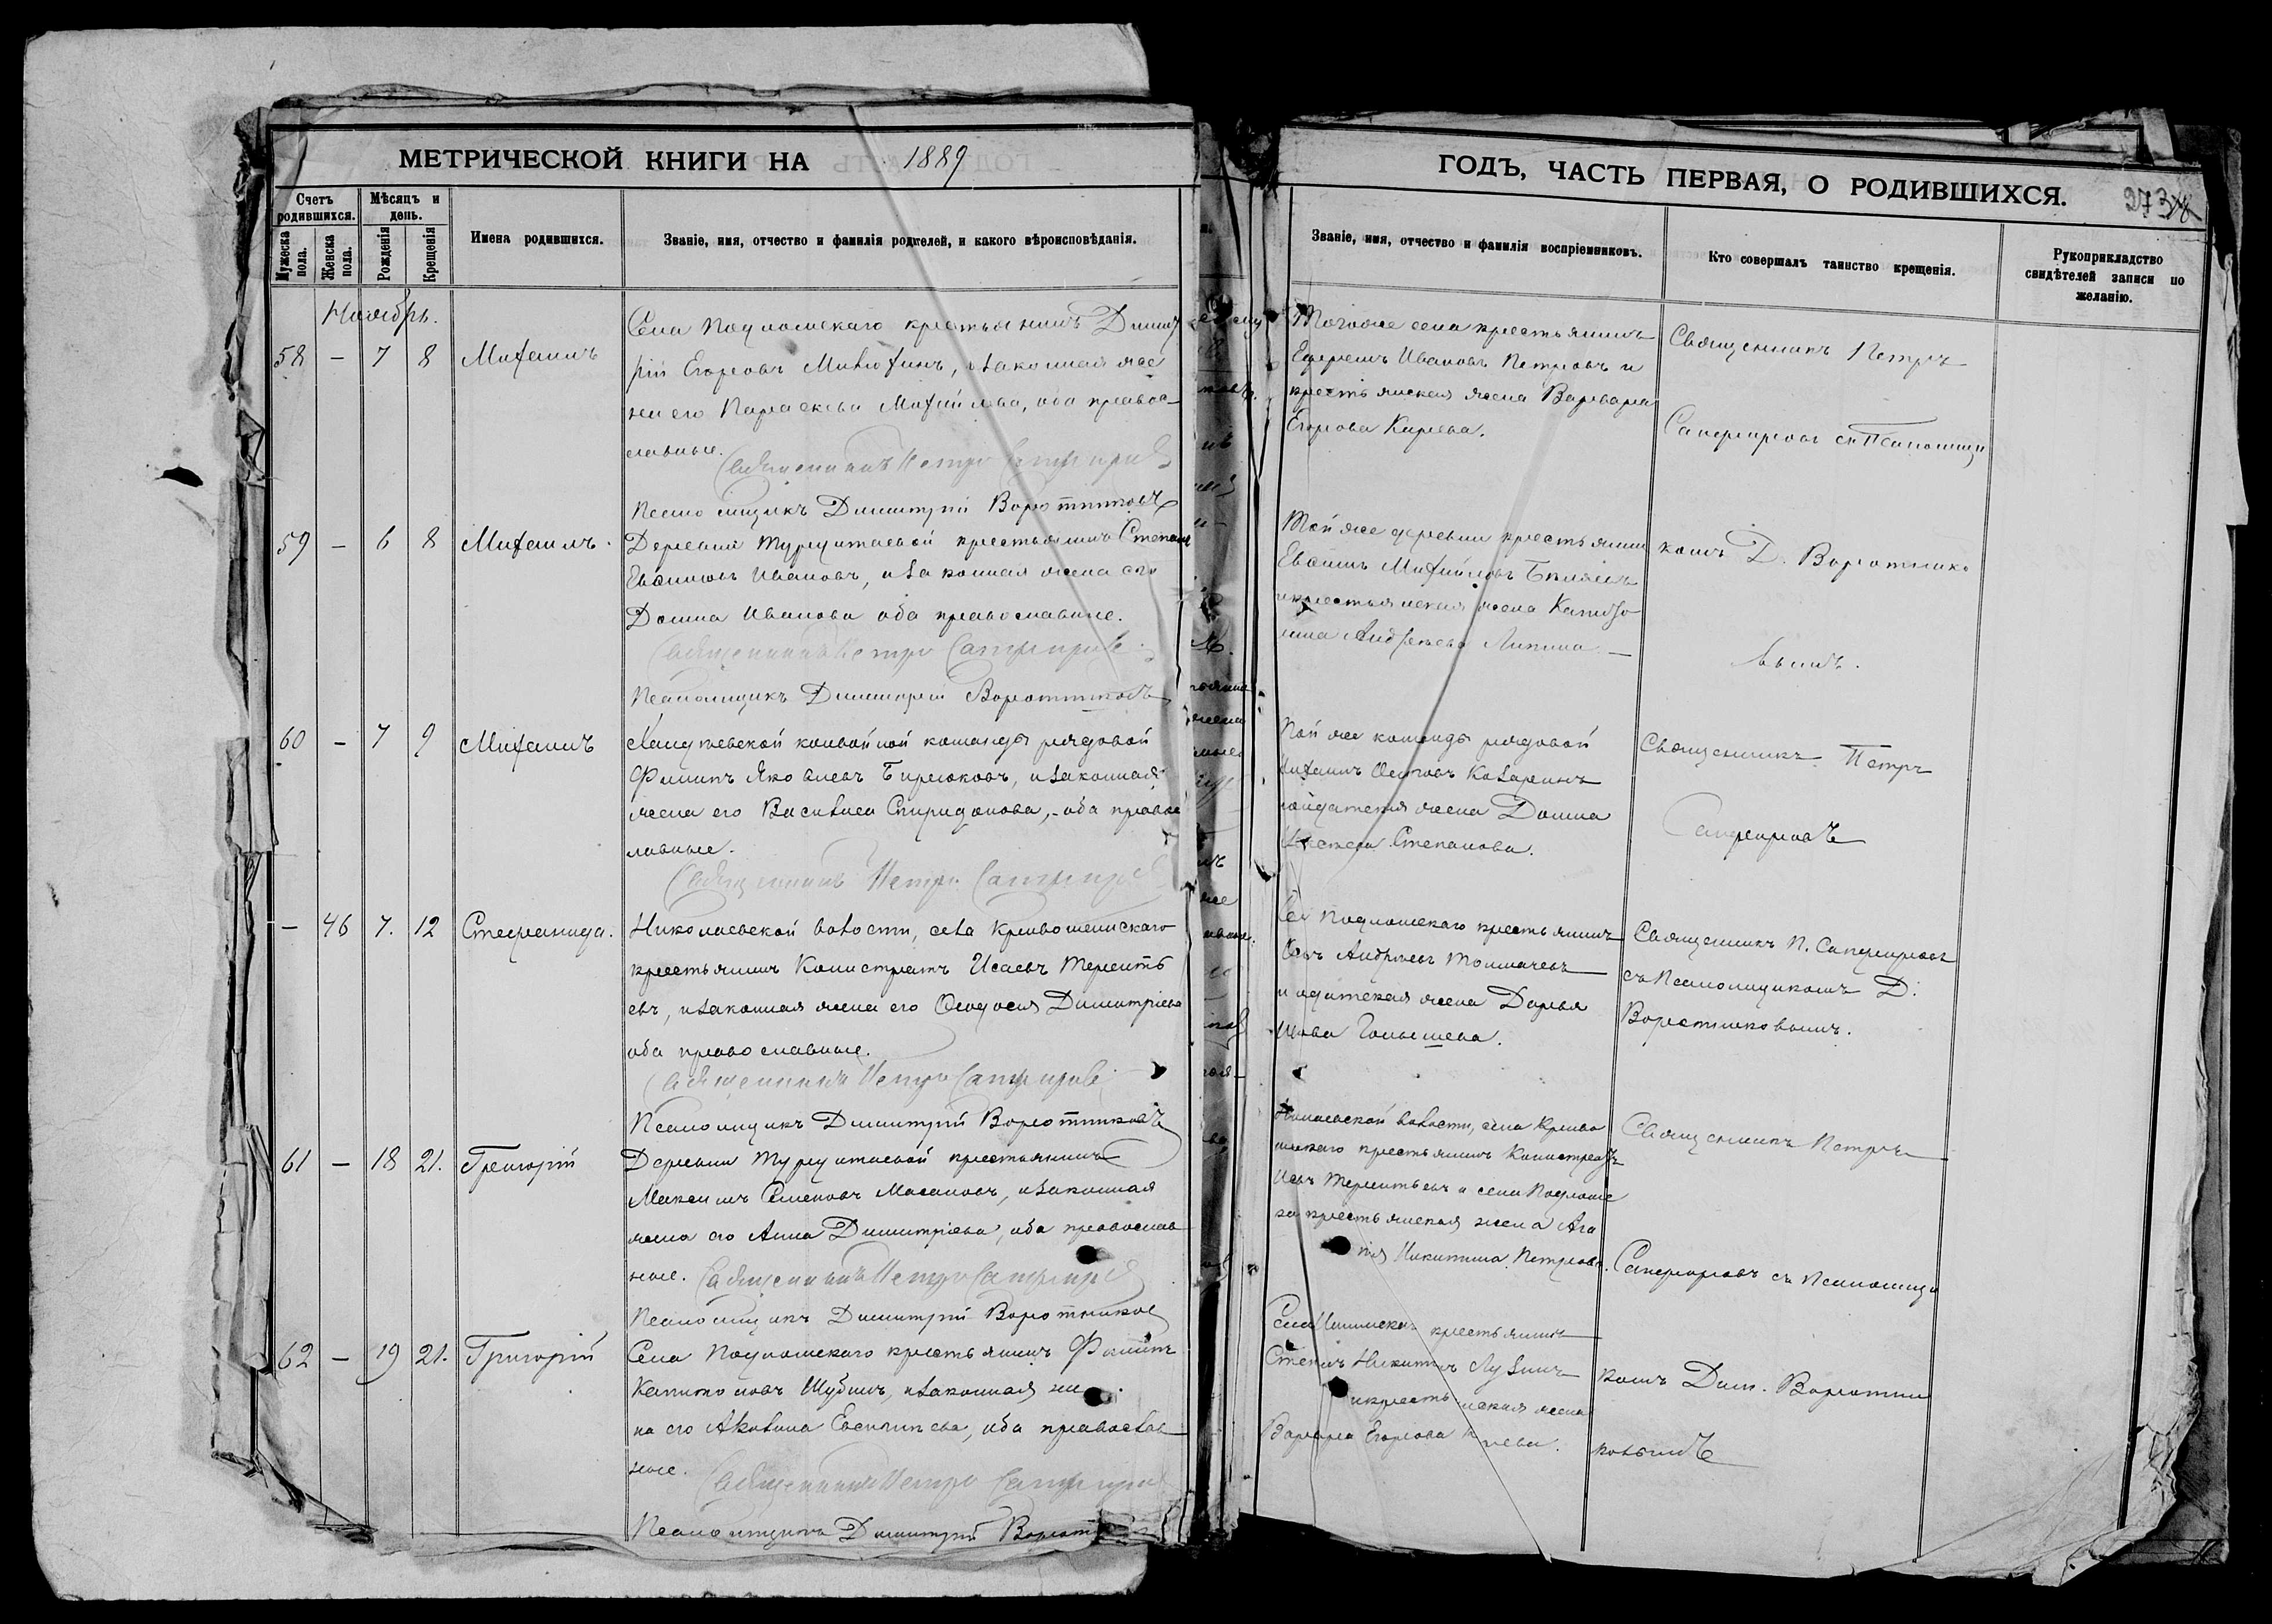 МЕТРИЧЕСКОЙ КНИГИ НА 1889
Счетъ родившихся.
Мѣсяцъ и день.
Мужеска пола.
Женска пола.
Рожденія
Крещенія
Имена родившихся.
Званіе, имя, отчество и фамилія родителей, и какого вѣроисповѣданія.
Ноябрь.
58 — 7 8 Михаилъ
Села Подломскаго крестьянинъ Димит
рій Егоровъ Милютинъ, и законная же
на его Параскева Михайлова, оба правос
лавные.
Священникъ Петръ Сапфировъ
Псаломщикъ Димитрій Воротниковъ
59 — 6 8 Михаилъ.
Деревни крестьянинъ Степанъ
Ивановъ, и законная жена его
Домна Иванова оба православные.
Священникъ Петръ Сапфировъ
Псаломщикъ Димитрій Воротниковъ
60 — 7 9 Михаилъ
конвойной команды рядовой
Филипъ Яковлевъ Бирюковъ, и законная
жена его Василиса Спиридонова, оба правос
лавные.
Священникъ Петръ Сапфировъ
— 46 7. 12 Стефанида.
Николаевской волости, села Кривошеинскаго
крестьянинъ Калистратъ Исаевъ Теренть
евъ, и законная жена его Ѳеодосія Димитріева
оба православные.
Священникъ Петръ Сапфировъ
Псаломщикъ Димитрій Воротниковъ
61 — 18 21. Григорій
Деревни крестьянинъ
Максимъ Семеновъ Масановъ, и законная
жена его Анна Димитріева, оба православ
ные. Священникъ Петръ Сапфировъ
Псаломщикъ Димитрій Воротниковъ
62 — 19 21. Григорій
Села Подломскаго крестьянинъ Филипъ
Капитоновъ Шубинъ, и законная же
на его Акилина оба православ
ные.
Священникъ Петръ Сапфировъ
Псаломщикъ Димитрій
ГОДЪ, ЧАСТЬ ПЕРВАЯ, О РОДИВШИХСЯ.
273
Званіе, имя, отчество и фамилія воспріемниковъ.
Кто совершалъ таинство крещенія.
Рукоприкладство свидѣтелей записи по желанію.
Тогоже села крестьянинъ
Ефремъ Ивановъ Петровъ и
крестьянская жена Варвара
Егорова Кирѣева.
Священникъ Петръ
Сапфировъ съ Псаломщи
Той же деревни крестьянин
Михайловъ
и крестьянская жена
Андреева Липина. —
комъ Д. Воротнико
вымъ.
той же команды рядовой
Михаилъ Осиповъ Казаринъ
солдатская жена Домна
Степанова.
Священникъ Петръ
Сапфировъ
Подломскаго крестьянинъ
Андреевъ Толмачевъ
и солдатская жена Дарья
Голышева.
Священникъ П. Сапфировъ
съ Псаломщикомъ Д.
Воротниковымъ.
Николаевской волости, села Криво
шеинскаго крестьянинъ Калистратъ
Терентьевъ и села Подломс
крестьянская жена Ага
Никитина Петрова.
Священникъ Петръ
Сапфировъ съ Псаломщи
крестьянинъ
Степанъ Никитинъ Лузинъ
и крестьянская жена
Варвара Егорова
комъ Дим. Воротни
ковымъ